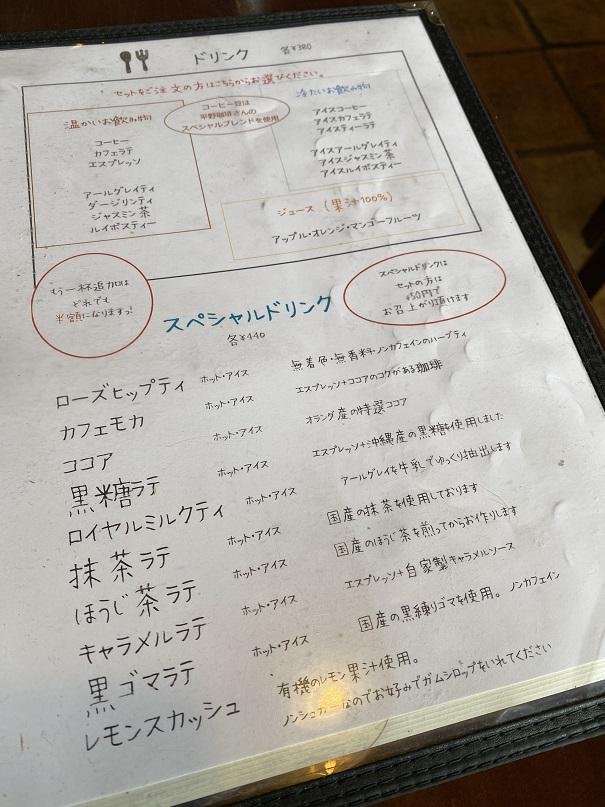 ドリンク 各¥380
セットをご注文の方はこちらからお選びください。
温かいお飲み物
コーヒー
カフェラテ
エスプレッソ
アールグレイティ
ダージリンティ
ジャスミン茶
ルイボスティー
コーヒー豆は
平野珈琲さんの
スペシャルブレンドを使用
冷たいお飲み物
アイスコーヒー
アイスカフェラテ
アイスティーラテ
アイスアールグレイティ
アイスジャスミン茶
アイスルイボスティー
ジュース (果汁100%)
アップル・オレンジ・マンゴーフルーツ
もう一杯追加は
どれでも
半額になりますっ!
スペシャルドリンク
各¥440
スペシャルドリンクは
セットの方は
¥50円で
お召上がり頂けます
ローズヒップティ ホット・アイス 無着色・無香料+ノンカフェインのハーブティ
カフェモカ ホット・アイス エスプレッソ+ココアのコクがある珈琲
ココア ホット・アイス オランダ産の特選ココア
黒糖ラテ ホット・アイス エスプレッソ+沖縄産の黒糖を使用しました
ロイヤルミルクティ ホット・アイス アールグレイを牛乳でゆっくり抽出します
抹茶ラテ ホット・アイス 国産の抹茶を使用しております
ほうじ茶ラテ ホット・アイス 国産のほうじ茶を煎ってからお作りします
キャラメルラテ ホット・アイス エスプレッソ+自家製キャラメルソース
黒ゴマラテ ホット・アイス 国産の黒練りゴマを使用。ノンカフェイン
レモンスカッシュ 有機のレモン果汁使用。
ノンシュガーなのでお好みでガムシロップをいれてください